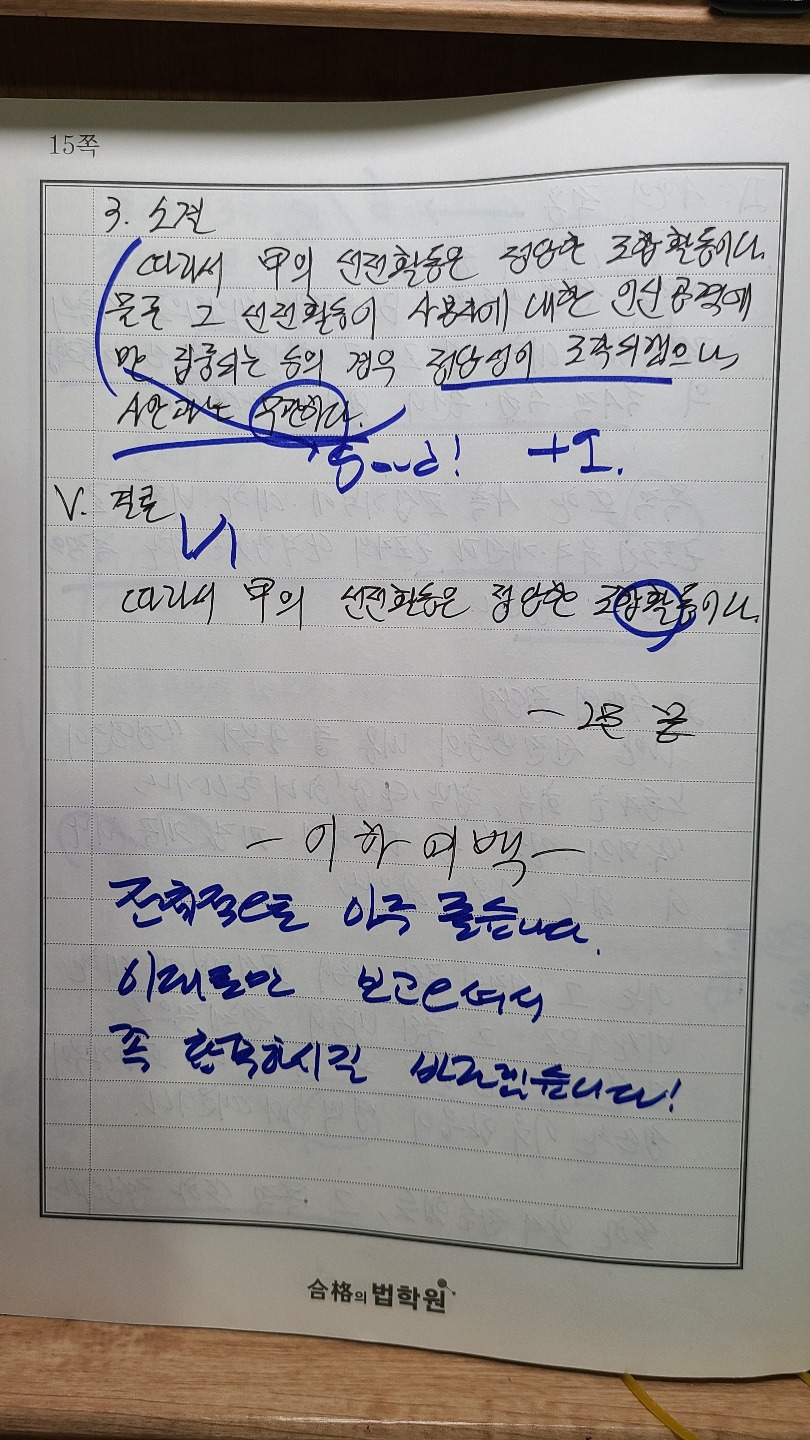 15쪽
3. 소결
따라서 甲의 선전활동은 정당한 조합활동이다.
물론 그 선전활동이 사용자에 대한 인신공격에
만 집중되는 등의 경우 정당성이 조각되겠으나,
사안과는 무관하다.
Good! +1.
V. 결론
따라서 甲의 선전활동은 정당한 조합활동이다.
- 2문 끝
- 이하여백 -
전체적으로 아주 좋습니다.
이대로만 보고으셔서
꼭 합격하시길 바라겠습니다!
合格의 법학원